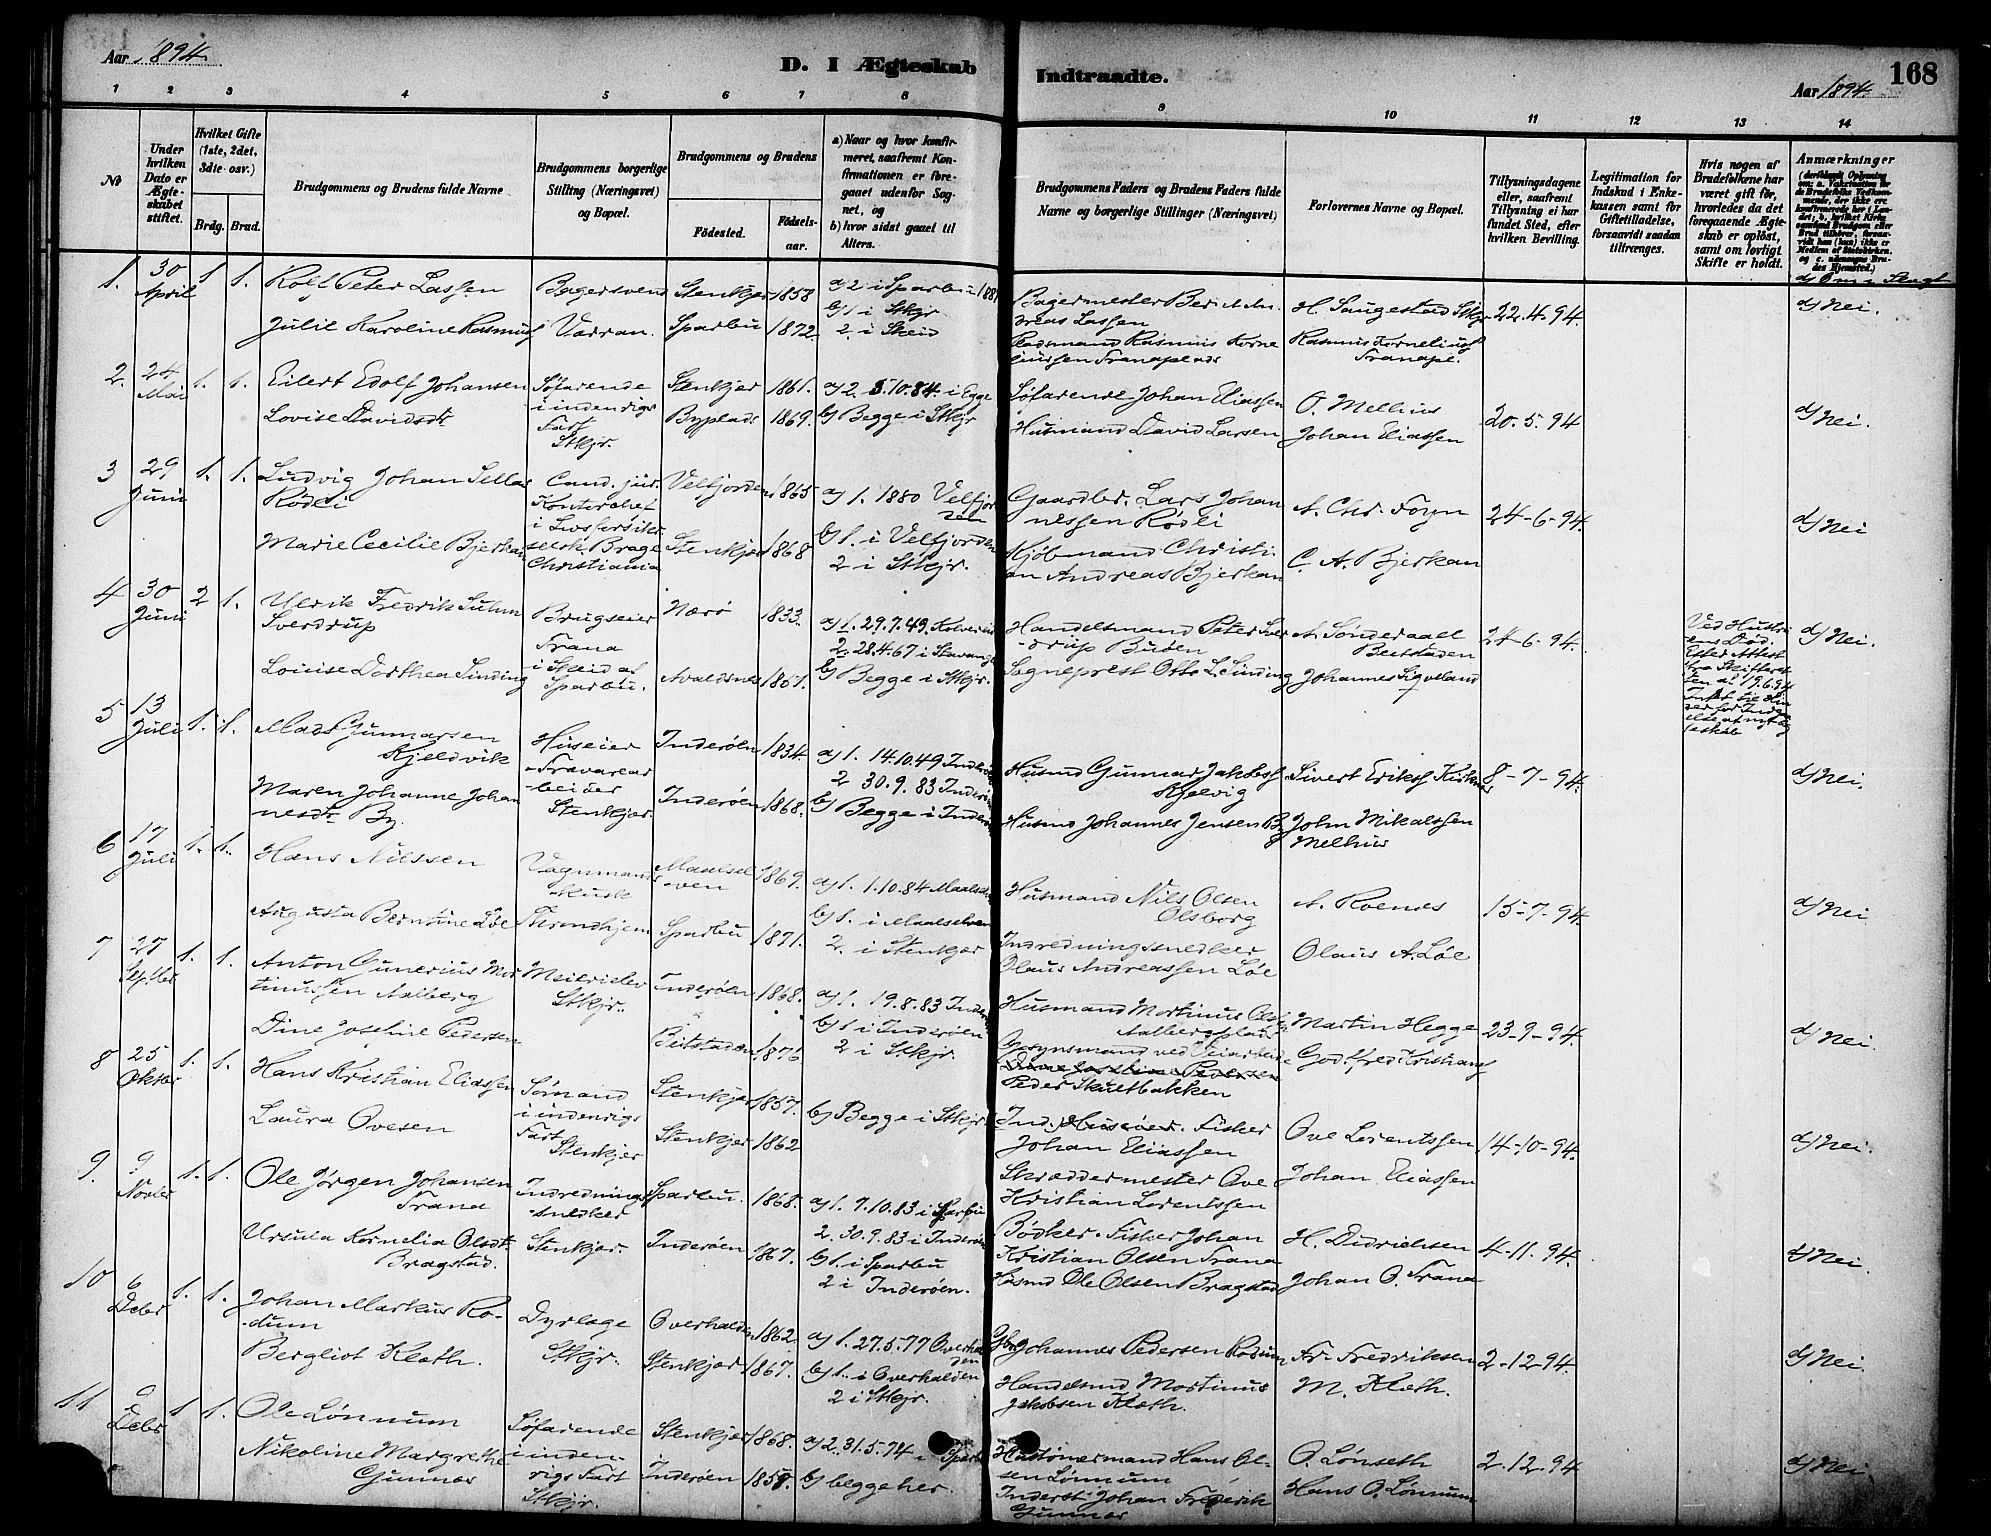 Aar 1894.
D. I Ægteskab
Indtraadte.
Aar 1894
168
1 2 3 4 5 6 7 8 9 10 11 12 13 14
№
Under hvilken Dato er Ægteskabet stiftet.
Hvilket Gifte (1ste, 2det, 3die osv.)
Brdg. Brud.
Brudgommens og Brudens fulde Navne
Brudgommens borgerlige Stilling (Næringsvei) og Bopæl.
Brudgommens og Brudens
Fødested.
Fødselsaar.
a) Naar og hvor konfirmeret, saafremt Konfirmationen er foregaaet udenfor Sognet, og
b) hvor sidst gaaet til Alters.
Brudgommens Faders og Brudens Faders fulde Navne og borgerlige Stillinger (Næringsvei)
Forlovernes Navne og Bopæl.
Tillysningsdagene eller, saafremt Tillysning ei har fundet Sted, efter hvilken Bevilling.
Legitimation for Indskud i Enkekassen samt for Giftetilladelse, forsaavidt saadan tiltrænges.
Hvis nogen af Brudefolkene har været gift før, hvorledes da det foregaaende Ægteskab er opløst, samt om lovligt Skifte er holdt.
Anmærkninger
d) Om i Slægt
1. 30 April 1 1.
Rolf Peter Lassen
Julie Karoline Rasmusd
Bagersvend
Varran.
Stenkjer 1858
Sparbu 1872
a) 2 i Sparbu 188
b) 1 i Stkjr
2. i Skeid
Bagermester Bernt An
dreas Lassen
Pladsmand Rasmus Korne
liussen Tranaplads
H. Saugestad Stkjr
Rasmus Korneliusf
Tranapl.
22.4.94.
d) Nei.
2. 24 Mai 1. 1.
Eilert Edolf Johansen
Lovise Davidsdt
Søfarende
i indenrigs
Fart
Stkjr.
Stenkjer 1861.
Byplads 1869.
a) 2. 5.10.84. i Egge
b) Begge i Stkjr
Søfarende Johan Eliassen
Husmand David Larsen
O. Melhus
Johan Eliassen
20.5.94
d) Nei.
3 29 Juni 1. 1.
Ludvig Johan Sellæs
Rödli
Marie Cecilie Bjerkan
Cand. jur.
Kontorchef
i Livsforsik
selsk. Brage
Christiania
Velfjorden 1865
Stenkjer 1868
a) 1. 1880 Velfjor
den
b) 1. i Velfjorden
2 i Stkjr.
Gaardbr. Lars Johan
nessen Rödli
Kjøbmand Christi
an Andreas Bjerkan
A. Chr. Foryn
C. A. Bjerkan
24-6-94.
d) Nei
4 30 Juni 2 1.
Ulrik Fredrik Suhm
Sverdrup
Louise Dorthea Sinding
Brugseier
Trana
i Skeid af
Sparbu.
Nærø 1833.
Avaldsnes 1851.
a) 1. 29.7.49. Kolvereid
2. 28.4.67 i Stavanger
b) Begge i Stkjr.
Handelsmand Peter Sver
drup Buøen
Sogneprest Otto L. Sinding
A. Sønderaall
Beitstaden
Johannes Sigveland
24-6-94.
Ved Hustru
ens Død.
Efter Attest
fra Skifteret
ten af 19.6.94
Intet til Hin
der for Indg
else af nyt Æg
teskab
d) Nei.
5 13 Juli 1. 1.
Mads Gunnarsen
Kjeldvik
Maren Johanne Johan
nesdt. By.
Huseier
Travarear
beider
Stenkjer.
Inderøen 1834.
Inderøen 1868.
a) 1. 14.10.49 Inderøen
2 30.9.83 Inderøen
b) Begge i Inderøen
Husmd Gunnar Jakobsf
Kjelvig
Husmd Johannes Jensen By
Sivert Eriksf Kirknes
John Mikalssen
Melhus
8-7-94.
d) Nei.
6 17 Juli 1. 1.
Hans Nilssen
Augusta Berntine Løe
Vognmands
kusk
Throndhjem
Maalsel
ven 1869.
Sparbu 1871.
a) 1. 1.10.84 Maalselven
b) 1. i Maalselven
2. i Stenkjer
Husmand Nils Olsen
Olsborg
Indredningssnedker
Olaus Andreassen Løe
A. Roenes
Olaus A. Løe
15-7-94.
d) Nei
7 27 Septbr 1. 1.
Anton Gunerius Mor
tinussen Aalberg
Dine Josefine Pedersen
Meierielev
Stkjr..
Inderøen 1868.
Beitstaden 1876
a) 1. 19.8.83 Inderøen
b) 1 i Inderøen
2 i Stkjr
Husmand Mortinus Olsen
Aalbergplads
Opsynsmand ved Veiarbeide
Dine Josefine Pedersen
Peder Skuetbakken
Martin Hegge
Godtfred Kristiansf
23-9-94.
d) Nei
8 25 Oktbr 1. 1.
Hans Kristian Eliassen
Laura Ovesen
Sømand
i indenrigs
Fart
Stenkjer
Stenkjer 1857.
Stenkjer 1862
b) Begge i Stkjr.
Ind. Huseier. Fisker
Johan Eliassen
Skræddermester Ove
Kristian Lorentssen
Ove Lorentssen
Johan Eliassen
14-10-94.
d) Nei.
9. 9 Novbr 1. 1.
Ole Jørgen Johansen
Trana
Ursula Kornelia Olsdt.
Bragstad.
Indrednings
snedker
Stenkjer.
Sparbu. 1868.
Inderøen 1867.
a) 1. 7.10.83 i Sparbu
2. 30.9.83 i Inderøen
b) 1. i Sparbu
2 i Inderøen.
Bødker. Fisker Johan
Kristian Olsen Trana
Husmd Ole Olsen Bragstad
H. Didrichsen
Johan O. Trana
4-11-94.
d) Nei.
10 6 Decbr 1. 1.
Johan Markus Ro-
dum
Bergliot Kloth.
Dyrlæge
Stkjr.
Overhalden 1862.
Stenkjer 1867.
a) 1. 27.5.77 Overhal
den
b) 1. i Overhalden
2 i Stkjr.
Gbr Johannes Pedersen Rodum
Handelsmd Mortinus
Jakobsen Kloth.
Fr. Fredriksen
M. Kloth.
2-12-94.
d) Nei
11 9 Decbr 1 1.
Ole Lønnum
Nikoline Margrethe
Gunnes
Søfarende
i inden-
rigs Fart
Stkjr.
Stenkjer 1868.
Inderøen 1858.
a) 2. 31.5.74 i Sparbu
b) begge her.
Kartonermand Hans Ol-
sen Lønnum
Inderst Johan Frederik
Gunnes
O. Lønseth
Hans O. Lønnum
2.12.94
d) Nei.